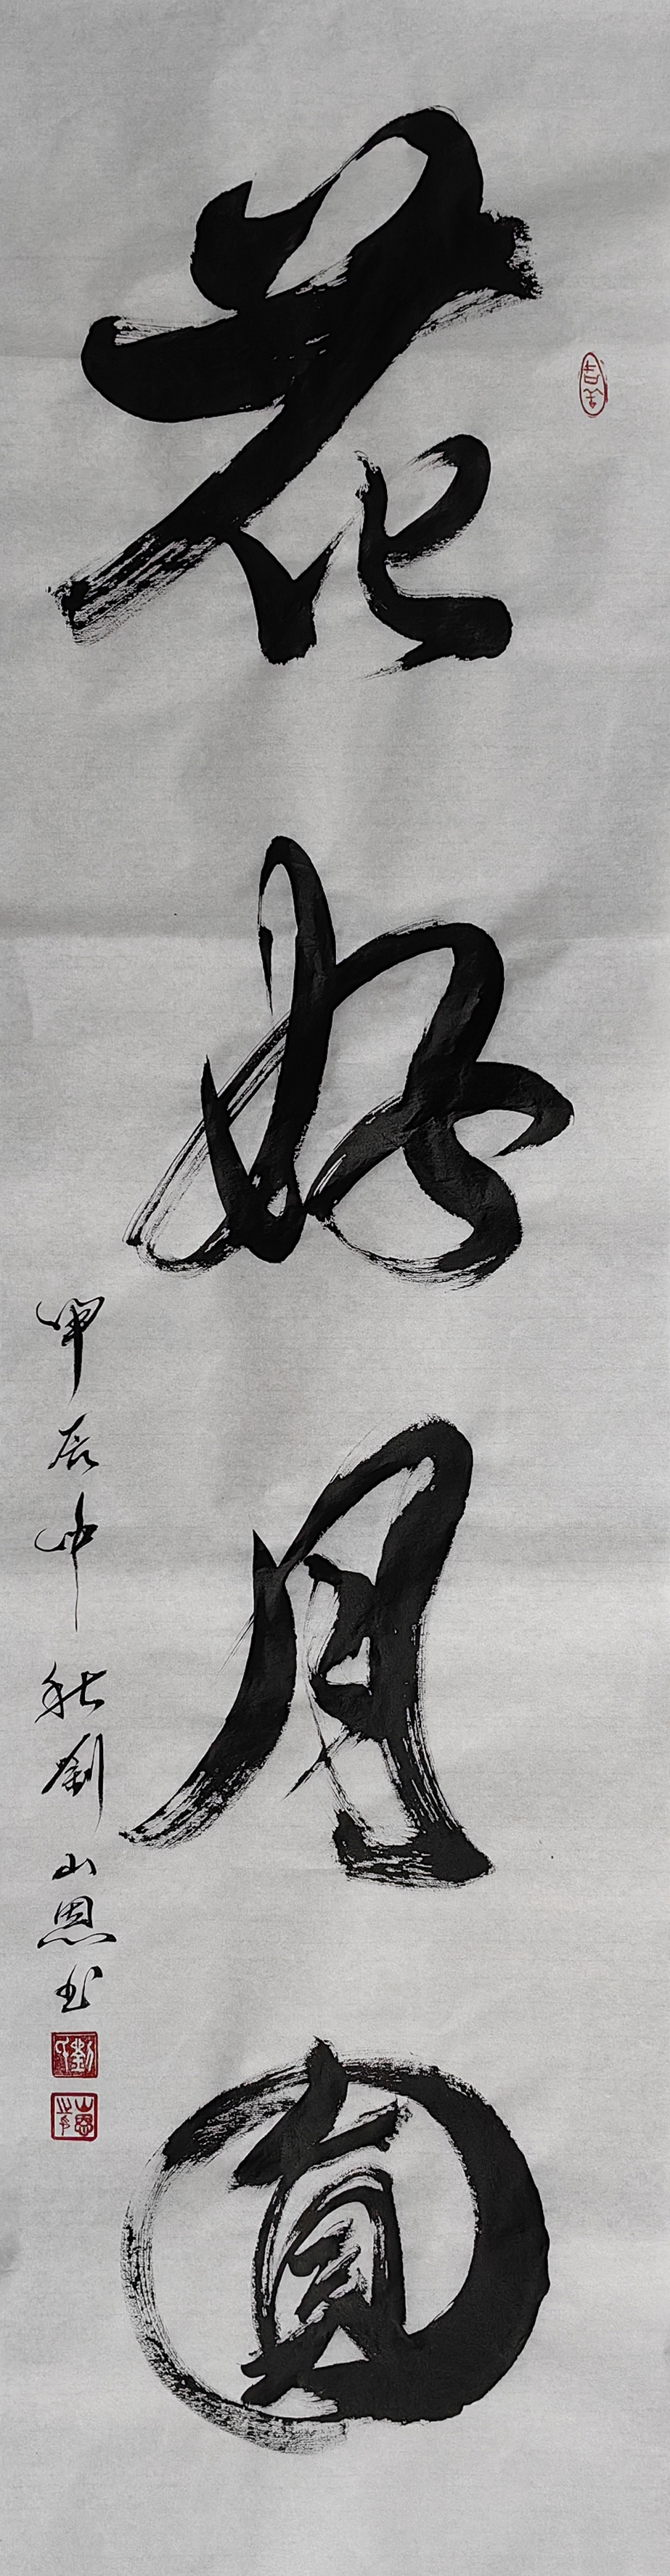 花好月圓
甲辰中秋劉山恩書